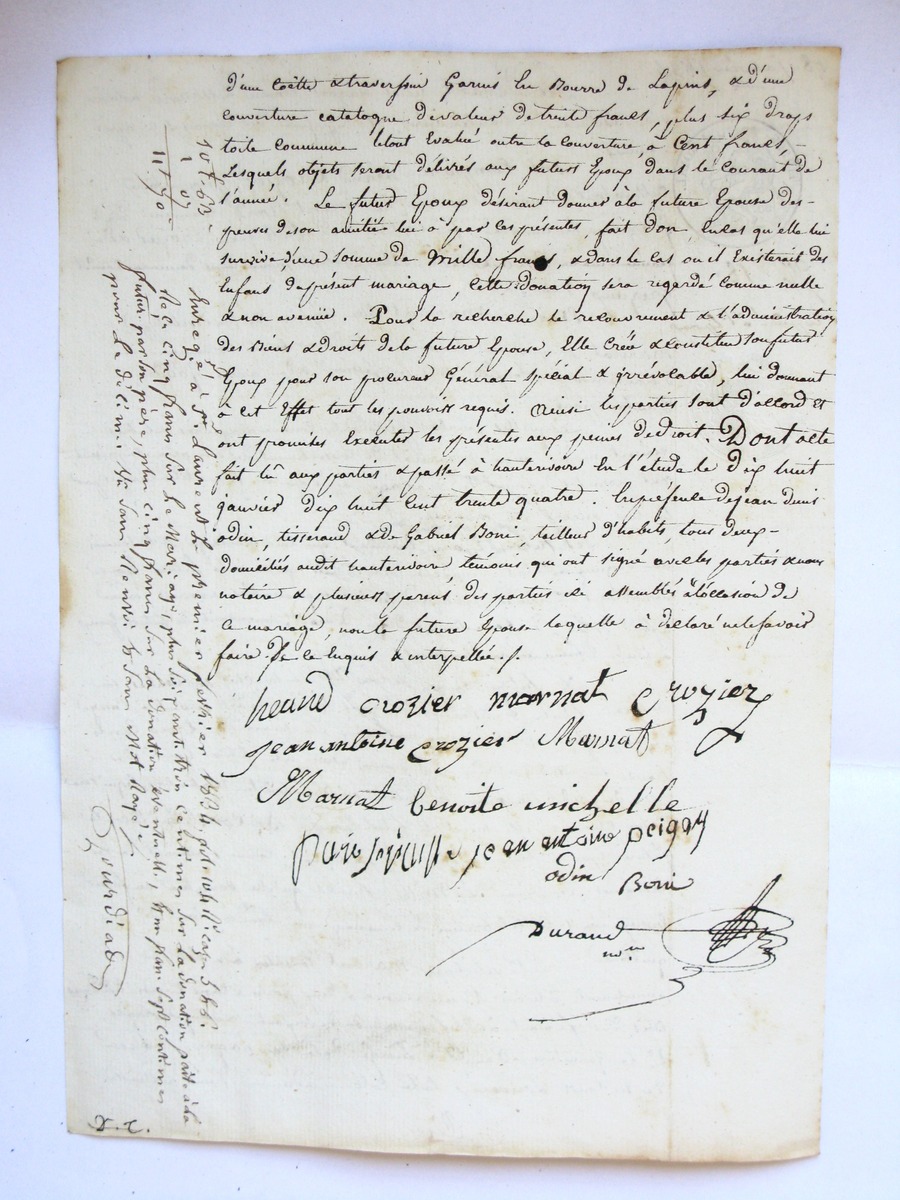 d'une Coëtte & traversin Garnis En Bourre de Lapins, & d'une
couverture catalogne de valeur de trente francs, plus six draps
toile commune le tout Evalué outre la couverture, à Cent francs,
Lesquels objets seront délivrés aux futurs Epoux dans le courant de
l'année. Le futur Epoux désirant donner à la future Epouse des
preuves de son amitié lui à par les présentes, fait don, En cas qu'elle lui
survive, d'une somme de Mille francs, & dans le cas ou il Existerait des
Enfans du présent mariage, cette donation sera regardé comme nulle
& non avenüe. Pour la recherche le recouvrement & l'administration
des Biens & droits de la future Epouse, Elle Crée & constitue son futur
Epoux pour son procureur Général spécial & irrévocable, lui donnant
à cet Effet tout les pouvoirs requis. Ainsi les parties sont d'accord et
ont promises Executer les présentes aux peines de droit. Dont acte
fait lû aux parties & passé à hauterivoire En l'étude le dix huit
janvier dix huit Cent trente quatre. En présence de jean denis
odin, tisserand & de Gabriel Boni, tailleur d'habits, tous deux
domiciliés audit hauterivoire témoins qui ont signé avec les parties & nous
notaire & plusieurs parens des parties ici assemblés à l'occasion de
ce mariage, non la future Epouse laquelle à déclaré ne le savoir
faire de ce Enquis & interpellée ./.
crozier marnat Crozier
jean antoine crozier Marnat
Marnat benoite michelle
jean antoine peigay
odin Boni
Durand
nre
10 f. 63
11 f. 70
Enregé à St Laurent le premier fevrier 1834. fol. 104 Ro case 5 & 6.
Reçu cinq francs sur le Mariage, plus soixante trois centimes sur la donation faite à la
futur par son père, plus cinq francs sur la donation eventuelle, & un franc sept centimes
pour le décime. Ni sans Renvoi & sans Mot Rayé.